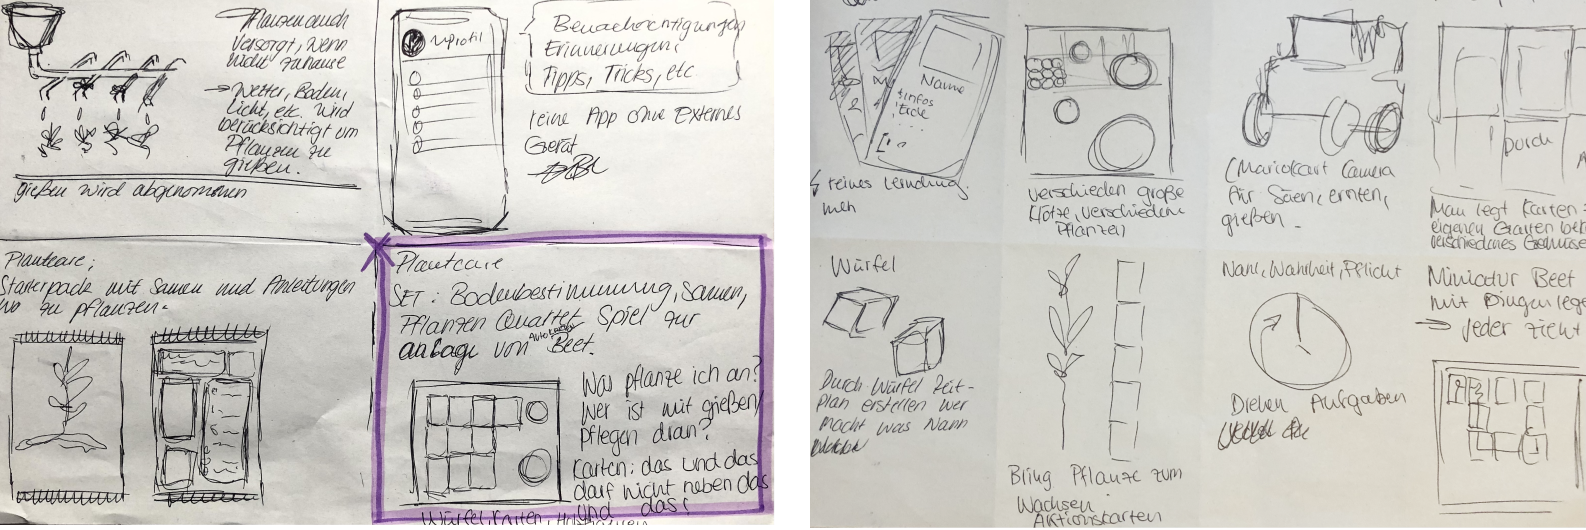 Pflanzen auch
versorgt, wenn
nicht zuhause
→ Wetter, Boden,
Licht, etc. wird
berücksichtigt um
Pflanzen zu
gießen.
gießen wird abgenommen
Profil
Benachrichtigungen
Erinnerungen,
Tipps, Tricks, etc.
reine App ohne Externes
Gerät
Plantcare:
Starterpack mit Samen und Anleitungen
wo zu pflanzen.
Plantcare
SET: Bodenbestimmung, Samen,
Pflanzen Quartet Spiel zur
anlage von Beet.
Was pflanze ich an?
Wer ist mit gießen/
pflegen dran?
Karten: das und das
darf nicht neben das
und das!
Würfel, Karten,
Name
+Infos
reines
mehr
verschieden große
Klötze, verschiedene
Pflanzen
(Mariokart Camera
für Säen, ernten,
gießen.
Durch
Man legt Karten
eigenen Garten
verschiedenes Gemüse
Würfel
Durch Würfel Zeit-
plan erstellen wer
macht was wann
Bring Pflanze zum
Wachsen
Aktionskarten
Wahrheit, Pflicht
Drehen Aufgaben
Miniatur Beet
mit Dingen
→ Jeder zieht